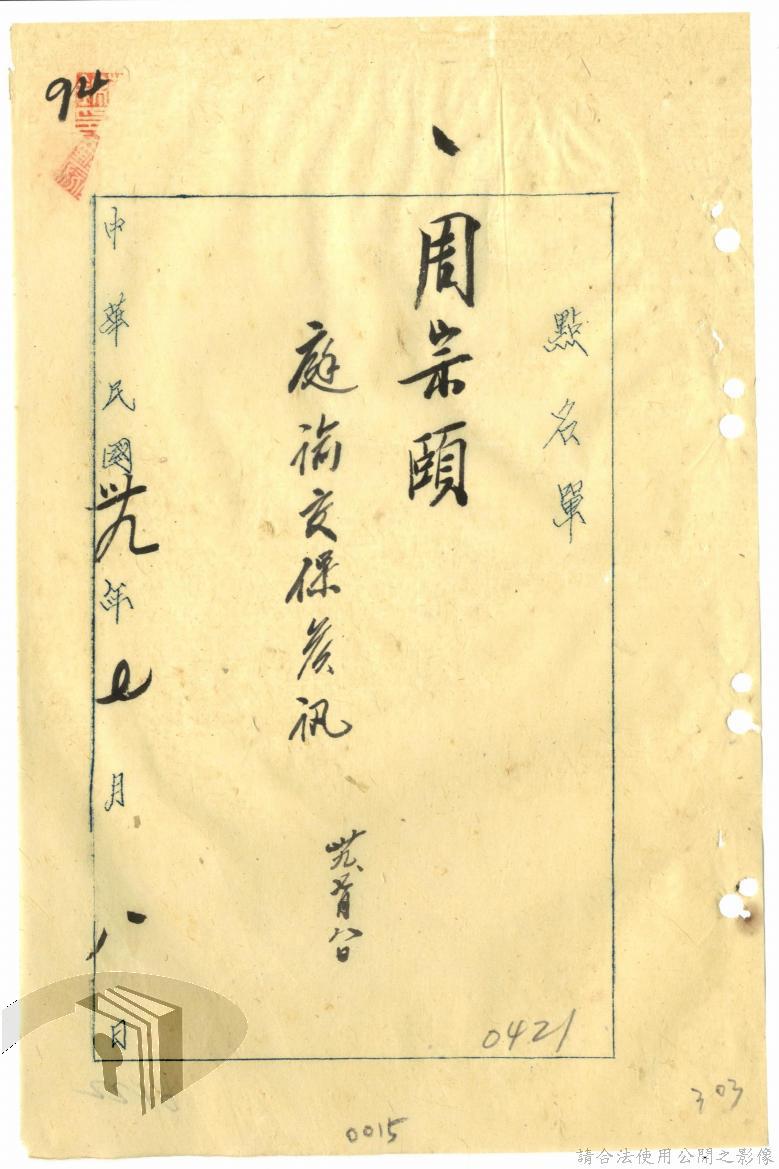 94
點名單
周宗頤
庭諭交保候訊
卅九、七月八日
中華民國卅九年七月八日
0421
303
0015
請合法使用公開之影像